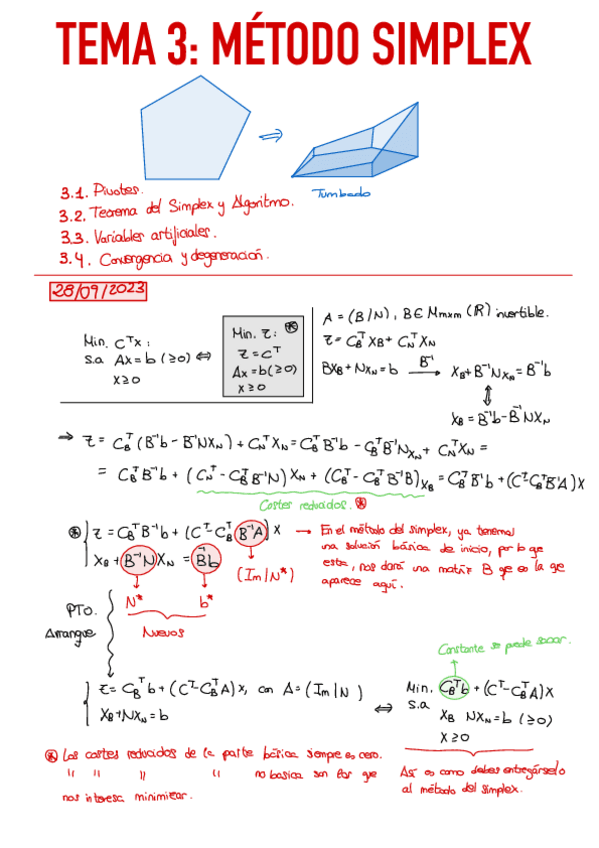 TEMA 3: MÉTODO SIMPLEX
Tumbado
3.1. Pivotes.
3.2. Teorema del Simplex y Algoritmo.
3.3. Variables artificiales.
3.4. Convergencia y degeneración.
28/09/2023
Min. Cᵀx :
s.a Ax=b (≥0) ⇔
x≥0
Min. z: *
z=Cᵀ
Ax=b(≥0)
x≥0
A = (B/N), B∈ Mmxm (ℝ) invertible.
z= C_Bᵀ X_B + C_Nᵀ X_N
BX_B + NX_N = b —B⁻¹→ X_B + B⁻¹NX_N = B⁻¹b
⇕
X_B = B⁻¹b - B⁻¹NX_N
⇒ z = C_Bᵀ (B⁻¹b - B⁻¹NX_N) + C_Nᵀ X_N = C_Bᵀ B⁻¹b - C_Bᵀ B⁻¹N X_N + C_Nᵀ X_N =
= C_Bᵀ B⁻¹b + (C_Nᵀ - C_Bᵀ B⁻¹N) X_N + (C_Bᵀ - C_Bᵀ B⁻¹B) X_B = C_Bᵀ B⁻¹b + (Cᵀ-C_Bᵀ B⁻¹A) X
Costes reducidos. *
* { z = C_Bᵀ B⁻¹b + (Cᵀ - C_Bᵀ B⁻¹A) X
X_B + B⁻¹N X_N = B⁻¹b
(Im/N*)
→ En el método del simplex, ya tenemos
una solución básica de inicio, por lo que
esta, nos dará una matriz B que es la que
aparece aquí.
N* b*
Nuevos
PTO.
Arranque
{ z = C_Bᵀ b + (Cᵀ - C_Bᵀ A) x, con A = (Im/N)
X_B + NX_N = b
⇔
Constante se puede sacar.
Min. C_Bᵀ b + (Cᵀ - C_Bᵀ A) X
s.a
X_B NX_N = b (≥0)
X ≥ 0
Así es como debes entregárselo
al método del simplex.
* Los costes reducidos de la parte básica siempre es cero.
" " " " no basica son los que
nos interesa minimizar.